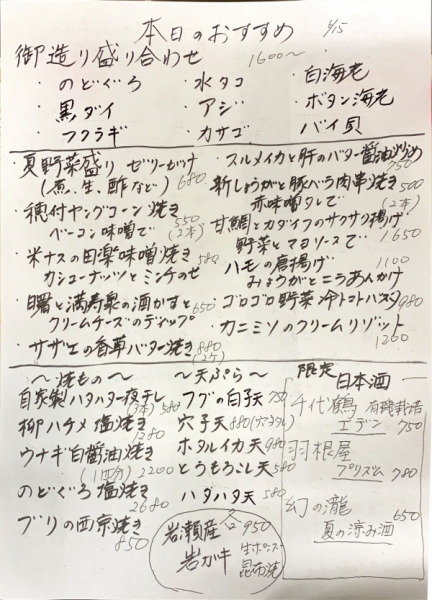 本日のおすすめ
御造り盛り合わせ 1600〜
・のどぐろ ・水タコ ・白海老
・黒ダイ ・アジ ・ボタン海老
・フクラギ ・カサゴ ・バイ貝
・夏野菜盛り ゼリーがけ
(煮、生、酢など) 680
・穂付ヤングコーン焼き
ベーコン味噌で 550
(2本)
・米ナスの田楽味噌焼き 580
カシューナッツとミンチのせ
・曙と満寿泉の酒かすと 650
クリームチーズのディップ
・サザエの香草バター焼き 880
(2ケ)
・スルメイカと肝のバター醤油炒め
750
・新しょうがと豚バラ肉串焼き 500
赤味噌タレで (2本)
・甘鯛とカダイフのサクサク揚げ
野菜とマヨソースで 1650
・ハモの唐揚げ 1100
みょうがとニラあんかけ
・ゴロゴロ野菜 冷トマトパスタ 980
・カニミソのクリームリゾット
1200
〜焼もの〜
自家製ハタハタ一夜干し
(3本) 580
柳ハチメ塩焼き
1280
ウナギ白醤油焼き
(1匹分) 2200
のどぐろ塩焼き
2680
ブリの西京焼き
850
〜天ぷら〜
フグの白子天 750
穴子天 880
ホタルイカ天 980
とうもろこし天 580
ハタハタ天 580
岩瀬産
岩ガキ
950
生ポン
昆布焼
限定
日本酒
千代鶴 有磯栽培
エデン 750
羽根屋
プリズム 780
幻の瀧 650
夏の涼み酒